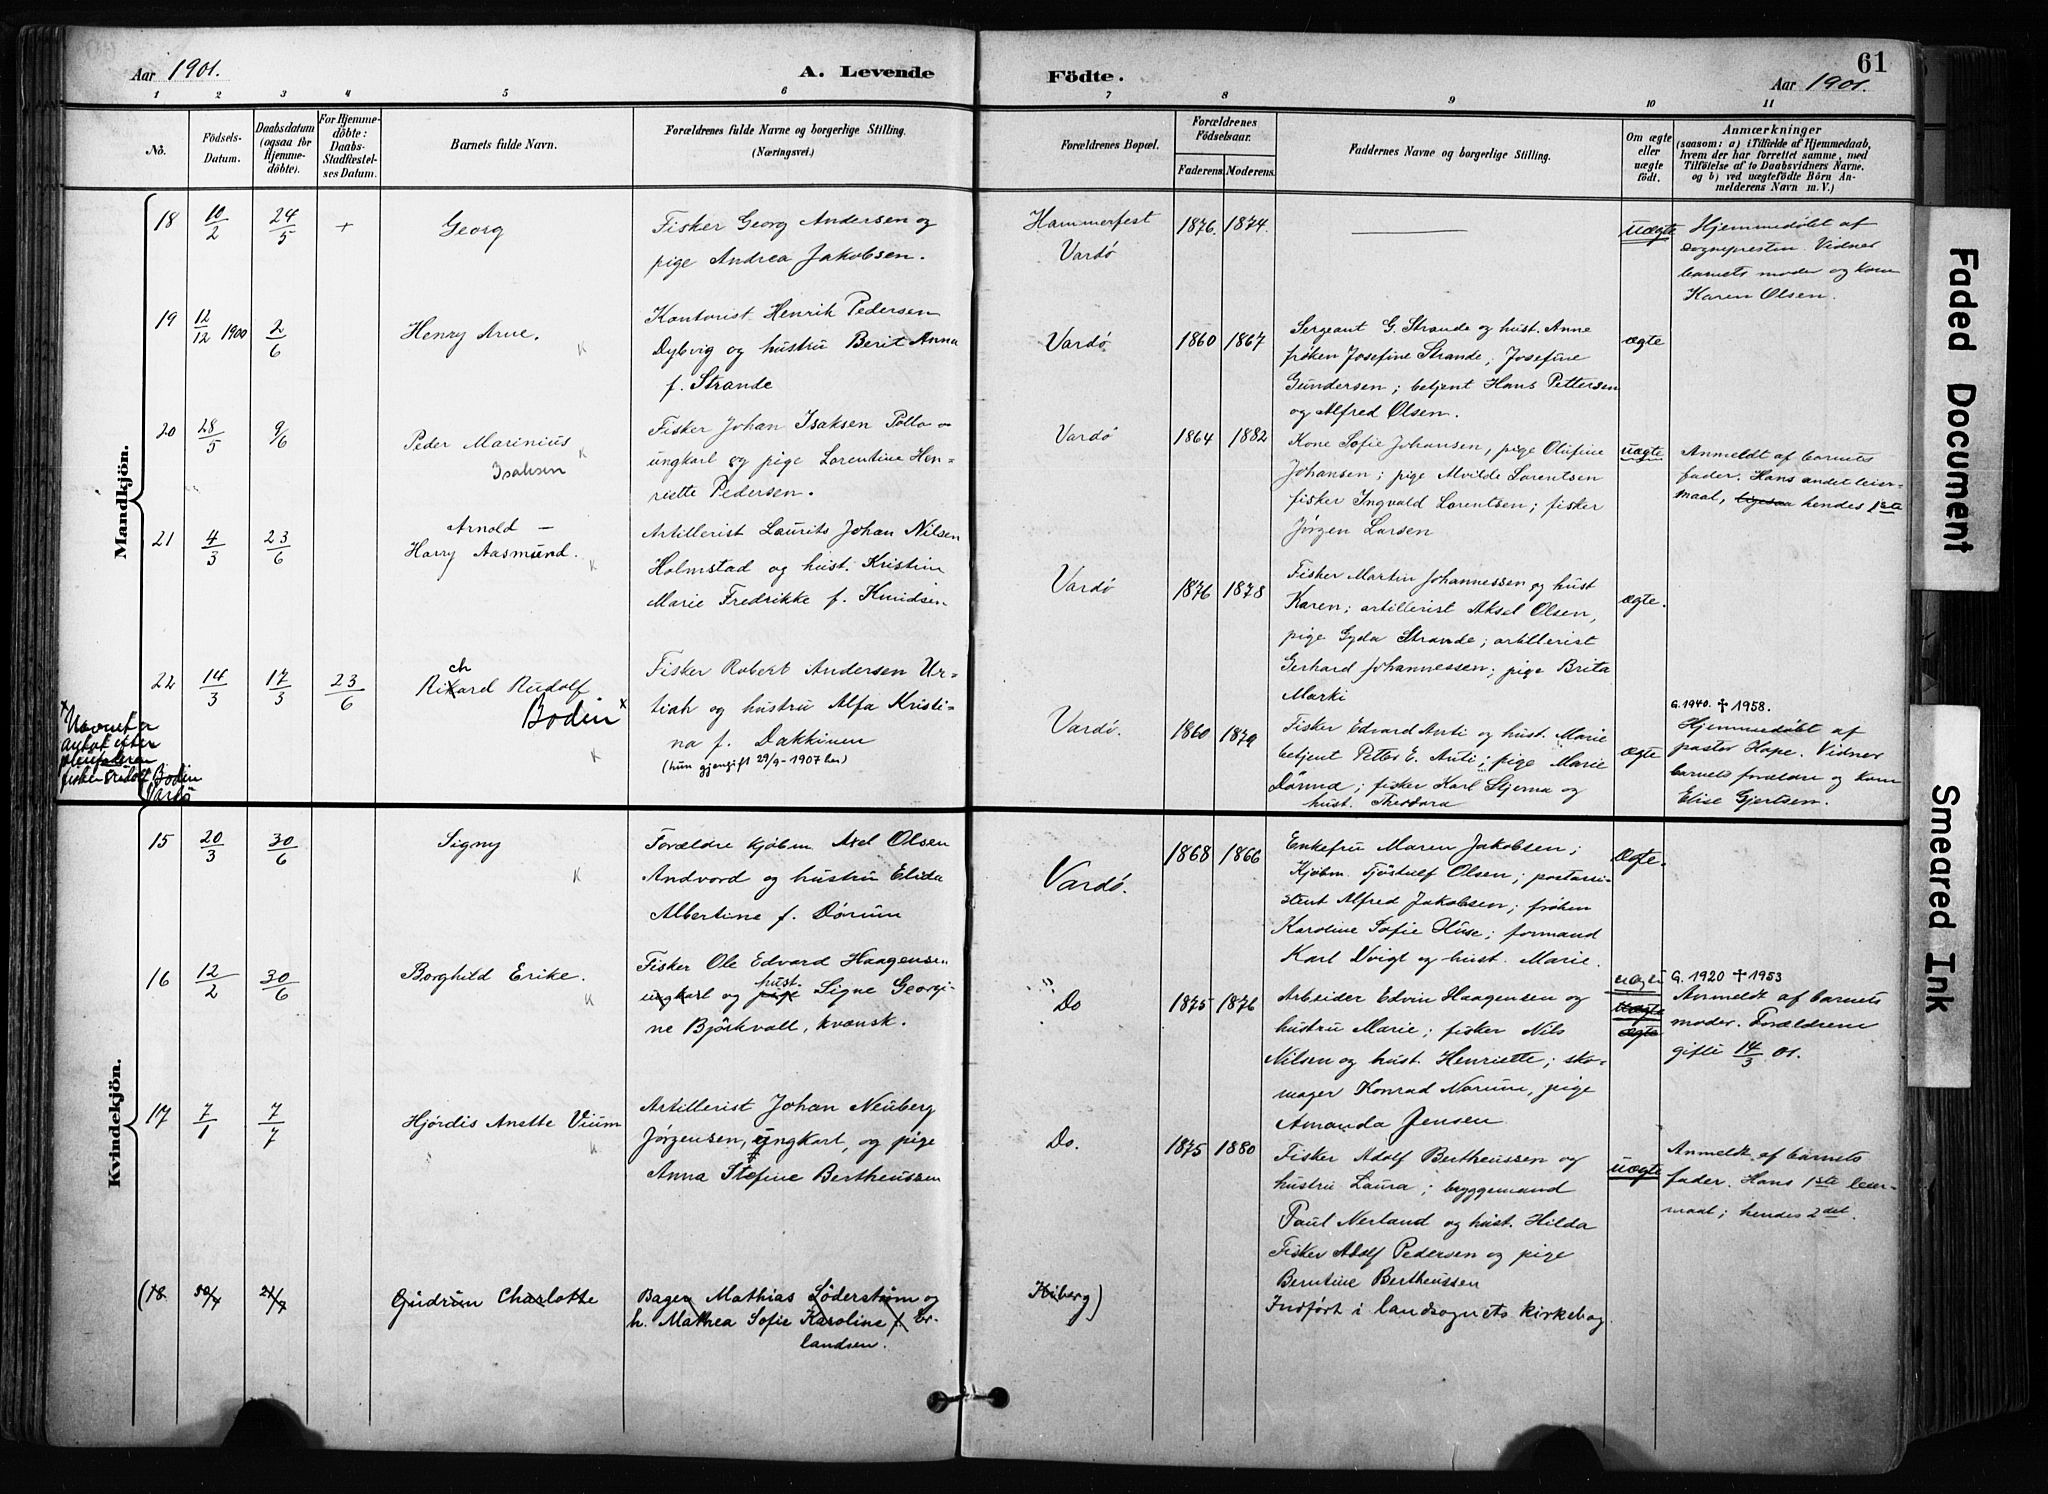 Aar 1901.
A. Levende
Födte.
61
Aar 1901.
1 2 3 4 5 6 7 8 9 10 11
No.
Födsels-
Datum.
Daabsdatum
(ogsaa för
Hjemme-
döbte).
For Hjemme-
döbte:
Daabs-
Stadfæstel-
ses Datum.
Barnets fulde Navn.
Forældrenes fulde Navne og borgerlige Stilling.
(Næringsvei.)
Forældrenes Bopæl.
Forældrenes
Födselsaar.
Faderens. Moderens.
Faddernes Navne og borgerlige Stilling.
Om ægte
eller
uægte
födt.
Anmærkninger
(saasom: a) i Tilfælde af Hjemmedaab,
hvem der har forrettet samme, med
Tilföielse af to Daabsvidners Navne,
og b) ved uægtefödte Börn An-
melderens Navn m. V.)
Mandkjön.
18 10/2 24/5 +
Georg
Fisker Georg Andersen og
pige Andrea Jakobsen.
Hammerfest
Vardø
1876. 1874.
uægte
Hjemmedøbt af
sognepresten. Vidner
barnets moder og kone
Karen Olsen.
19 12/12 1900 2/6
Henry Arve.
Kontorist Henrik Pedersen
Dybvig og hustru Berit Anna
f. Strande
Vardø
1860 1867
Sergeant G. Strande og hust. Anne
frøken Josefine Strande; Josefine
Gundersen; betjent Hans Pettersen
og Alfred Olsen.
ægte
20 28/5 9/6
Peder Marinius
Isaksen
Fisker Johan Isaksen Pollo
ungkarl og pige Lorentine Hen-
riette Pedersen.
Vardø
1864 1882
Kone Sofie Johansen, pige Olufine
Johansen; pige Mvilde Lorentsen
fisker Ingvald Lorentsen; fisker
Jørgen Larsen
uægte
Anmeldt af barnets
fader. Hans andet leier-
maal, ligesaa hendes 1ste
21 4/3 23/6
Arnold —
Harry Aasmund.
Artillerist Laurits Johan Nilsen
Holmstad og hust. Kristine
Marie Fredrikke f. Knudsen
Vardø
1876 1878
Fisker Martin Johannessen og hust
Karen; artillerist Aksel Olsen,
pige Gyda Strande; artillerist
Gerhard Johannessen; pige Brita
Marki
ægte.
22 14/3 17/3 23/6
ch
Rikard Rudolf
Bodin x
Fisker Robert Andersen Ur-
tiah og hustru Alfa Kristi-
na f. Dakkinen
(hun gjengift 29/9-1907 her)
Vardø.
1860 1879
Fisker Edvard Anti og hust. Marie
betjent Petter E. Anti; pige Marie
Dørmed; fisker Karl Stjerna og
hust. Theodora
ægte
G. 1940. ✝ 1958.
Hjemmedøbt af
pastor Hope. Vidner
barnets forældre og kone
Elise Gjertsen.
x Navnet er
antat efter
pleiefaderen
fisker Rudolf Bodin
Vardø
Kvindekjön.
15 20/3 30/6
Signy
Forældre kjøbm. Axel Olsen
Andvord og hustru Elida
Albertine f. Dørum
Vardø.
1868 1866
Enkefru Maren Jakobsen;
Kjøbm. Tjöstulf Olsen; postassi-
stent Alfred Jakobsen; frøken
Karoline Sofie Huse; formand
Karl Voigt og hust. Marie.
Ægte.
16 12/2 30/6
Borghild Erike.
Fisker Ole Edvard Haagensen
hust.
ungkarl og pige Signe Georgi-
ne Bjørkvoll, kvænsk.
Do
1875 1876
Arbeider Edvin Haagensen og
hustru Marie; fisker Nils
Nilsen og hust. Henriette; sko-
mager Konrad Norum, pige
Amanda Jensen
uægte
uægte
ægte
G. 1920 ✝ 1953
Anmeldt af barnets
moder. Forældrene
gifte 14/3 01.
17 7/1 7/7
Hjørdis Anette Vium
Artillerist Johan Neuberg
Jørgensen, ungkarl, og pige
Anna Stefine Bertheussen
Do.
1875 1880
Fisker Adolf Bertheussen og
hustru Laura; bryggemand
Paul Nerland og hust. Hilda
Fisker Adolf Pedersen og pige
Berntine Bertheussen
uægte
Anmeldt af barnets
fader. Hans 1ste leier-
maal; hendes 2det.
(18. 30/4 21/7
Gudrun Charlotte
Bager Mathias Söderstrøm og
h. Mathea Sofie Karoline f. Er-
landsen.
Kiberg)
Indført i landsognets kirkebog.
Faded Document
Smeared Ink